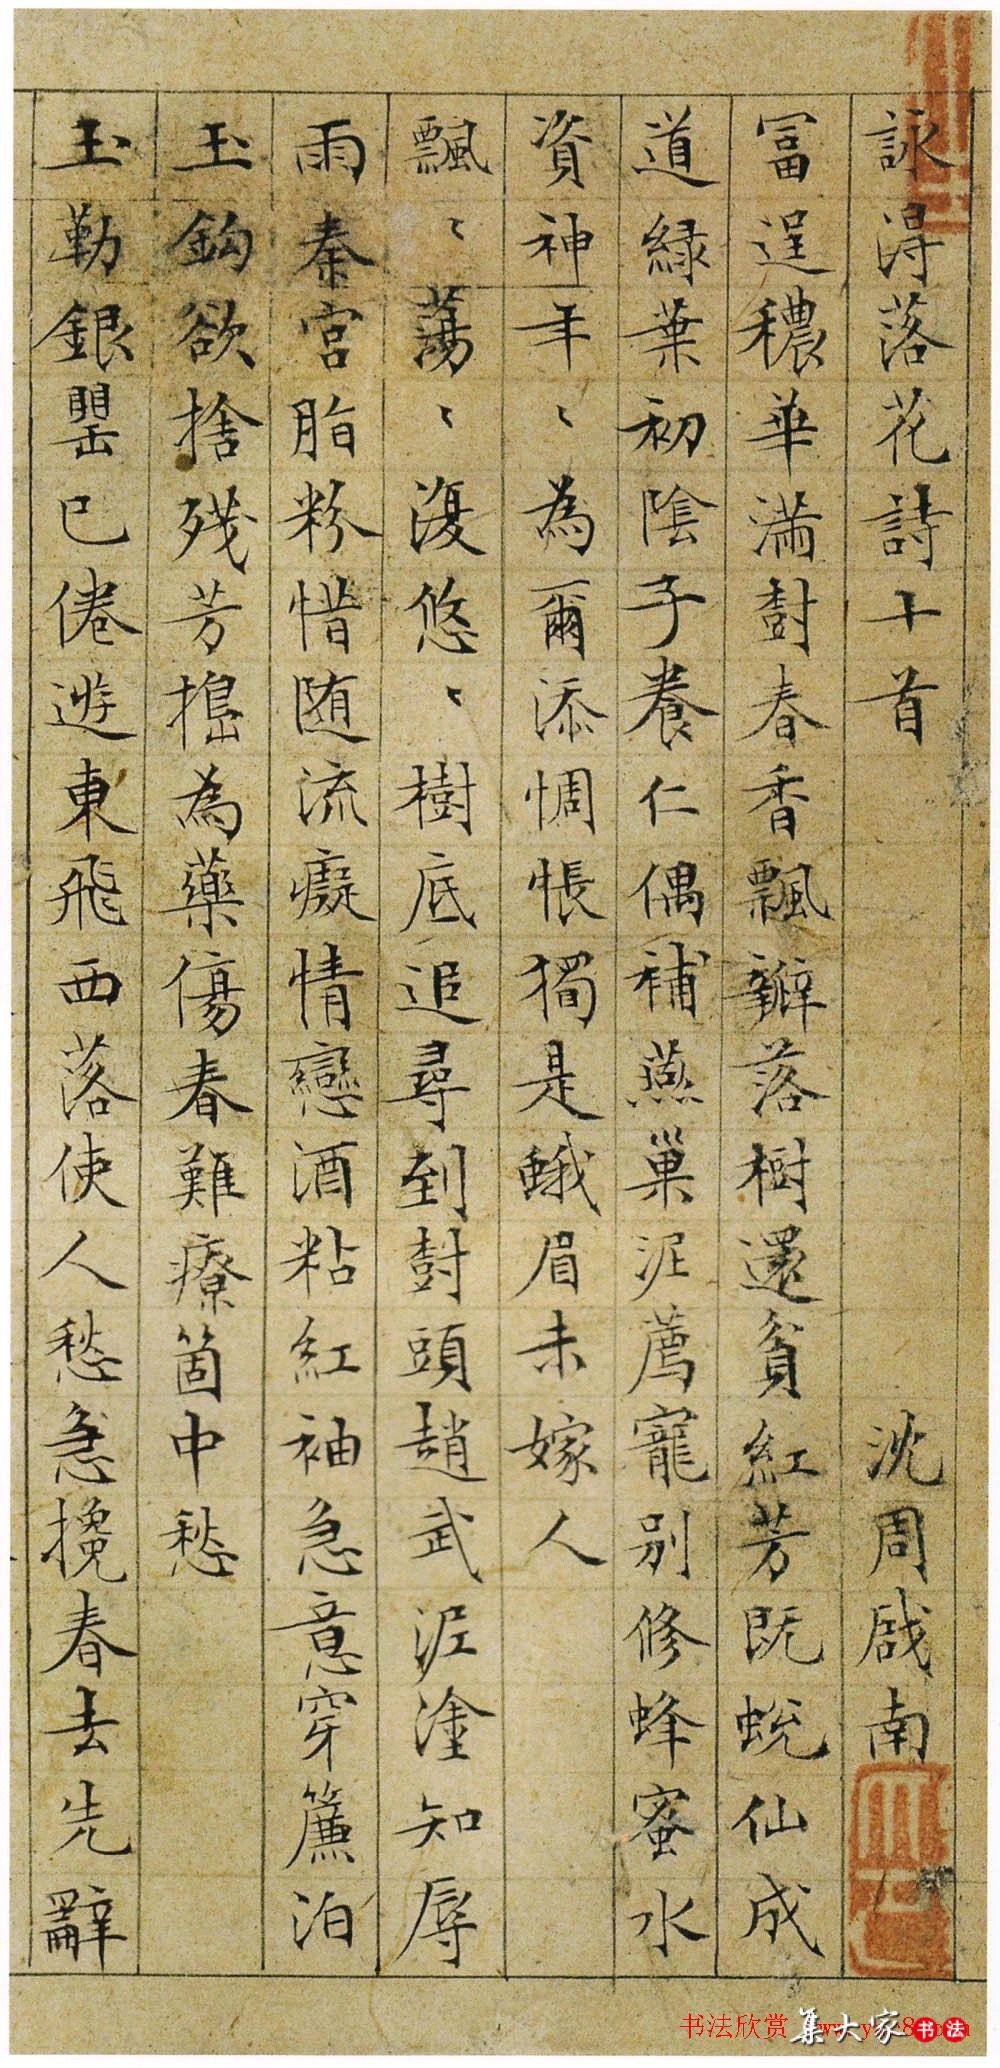 詠得落花詩十首 沈周啟南
冨逞穠華滿樹春香飄瓣落樹還貧紅芳既蛻仙成
道綠葉初陰子養仁偶補燕巢泥薦寵別修蜂蜜水
資神年〻為爾添惆悵獨是蛾眉未嫁人
飄〻蕩〻復悠〻樹底追尋到樹頭趙武泥塗知辱
雨秦宮脂粉惜随流癡情戀酒粘紅袖急意穿簾泊
玉鈎欲捨殘芳搗為藥傷春難療箇中愁
玉勒銀罌已倦遊東飛西落使人愁急攙春去先辭
书法欣赏
集大家书法